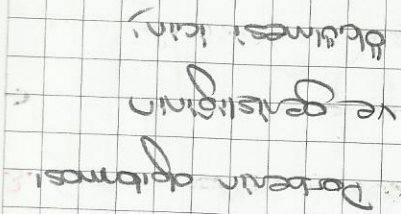 Darbenin dağılması
ve genişliğinin
ölçülmesi için,